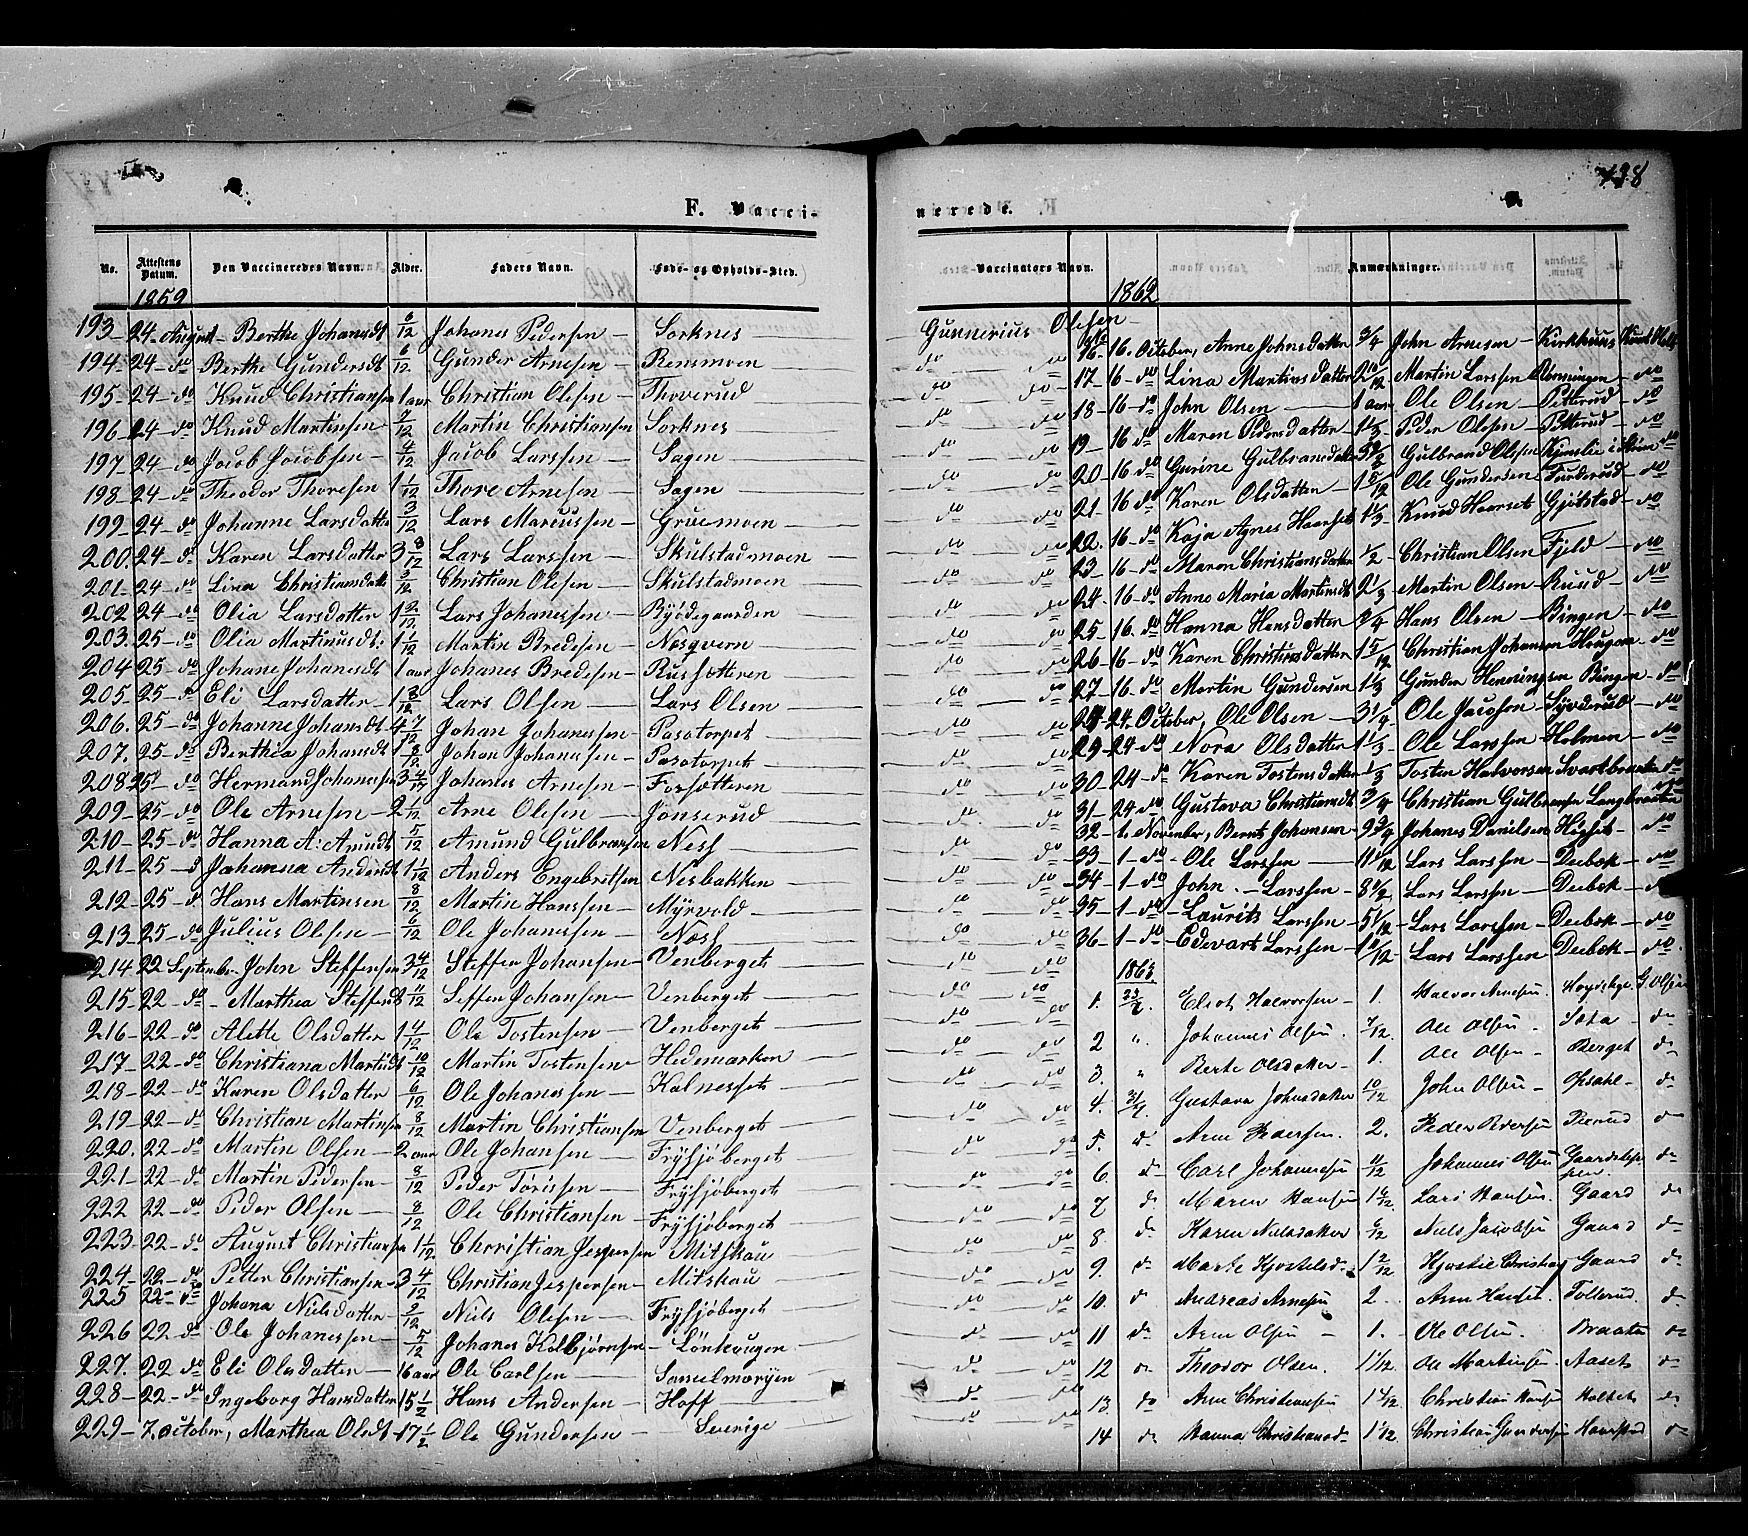 438
F. Vacci-
nerede.
No. Attestens Datum. Den Vaccineredes Navn. Alder. Faders Navn. Føde- og Opholds-Sted. Vaccinators Navn. Anmærkninger.
1859
193 - 24 August - Berthe Johansdt 6/12 Johanes Pedersen - Sorknes - Gunnerius Olesen
194 - 24 - do Berthe Gundersdt 6/12 Gunder Arnesen - Rensmoen - do do
195 - 24 - do Knud Christiansen 1 aar Christian Olesen - Thoverud - do do
196 24 - do Knud Martinsen 7/12 Martin Christiansen Sorknes - do do
197 - 24 - do Jacob Jacobsen - 4/12 Jacob Larssen - Sagen - do do
198 - 24 - do Theodor Thoresen 1 1/12 Thore Arnesen - Sagen - do do
199 - 24 - do Johanne Larsdatter 3/12 Lars Marcussen - Gruemoen - do do
200. 24 - do Karen Larsdatter 3 8/12 Lars Larssen - Skulstadmoen - do do
201 - 24 - do Lina Christiansdatt 3/12 Christian Olesen - Skulstadmoen - do do
202 24 - do Olia Larsdatter 1 2/12 Lars Johanessen - Byødegaarden - do do
203. 25 - do Olia Martinusdt: 1 1/12 Martin Bredesen - Nesqvern - do do
204 25 - do Johane Johanesdt 1 aar Johanes Bredesen - Russætteren - do do
205 - 25 - do Eli Larsdatter - 1 8/12 Lars Olsen - Lars Olsen - do do
206. 25 - do Johanne Johansdt 4 7/12 Johan Johanessen - Pasatorpet - do do
207. 25 - do Berthea Johansdt 1 8/12 Johan Johanessen - Pasatorpet - do do
208 25 - do Herman Johanessen 3 4/12 Johanes Arnesen - Forsætteren - do do
209 - 25 - do Ole Arnesen - 2 1/12 Arne Olesen - Jonserud - do do
210 - 25 - do Hanna A: Amundt 5/12 Amund Gulbransen Ness - do do
211 - 25 - d Johanna Andersdt 1 1/12 Anders Engebretsen Nesbakken - do do
212 - 25 - d Hans Martinsen 8/12 Martin Hanssen - Myrvold - do do
213 - 25 - do Julius Olsen - 6/12 Ole Johanessen - Næss - do do
214 22 September - John Steffensen 3 4/12 Steffen Johansen - Venberget - do do
215 - 22 - do - Marthea Steffensdt 11/12 Steffen Johansen - Venberget - do do
216 - 22 - do Alette Olsdatter 1 4/12 Ole Tostensen - Venberget - do do
217 - 22 - do Christiana Martinsdt 10/12 Martin Tostensen - Hedemarken - do do
218 - 22 - do Karen Olsdatter 6/12 Ole Johanessen - Kalnesset - do do
219 - 22 - do Christian Martinsen 8/12 Martin Christiansen Venberget - do do
220. 22 - do Martin Olsen - 2 aar Ole Johansen - Frysjøberget - do do
221 - 22 - do Martin Pedersen - 8/12 Peder Torissen - Frysjøberget - do do
222 - 22 - do Peder Olsen - 8/12 Ole Christiansen - Frysjøberget - do do
223 - 22 - do August Christiansen 1 1/12 Christian Jespersen Mitskau - do do
224 - 22 - do Petter Christiansen - 3 4/12 Christian Jespersen - Mitskau - do do
225 22 - do Johana Nielsdatter - 2/12 Niels Olesen - Frysjøberget - do do
226 22 - do Ole Johanessen - 5/12 Johanes Kolbjørnsen - Lønhougen - do do
227. 22 - do Eli Olsdatter - 16 aar Ole Carlsen - do do
228 - 22 - do Ingeborg Hansdatter 15 1/2 Hans Andersen - Hoff - do do
229 - 7. october, Marthea Olsdt - 17 1/2 Ole Gundersen - Sverige - do do
1862
16 - 16. October, Anne Johnsdatter 3/4 John Arnesen - Kirkhuus
17 - 16 - do Lina Martinsdatter 2 10/12 Martin Larssen - do
18 - 16 - do John Olsen - 1 aar Ole Olsen - Petterud - do
19 - 16 do Maren Pedersdatter - 1 1/3 Peder Olesen - Petterud - do
20 - 16 do Gurine Gulbransdatter Gulbrand Olssen
21 - 16 do Karen Olsdatter - 1 5/12 Ole Gundersen - Furderud - do
22. 16 - do Kaja Agnes Haarset 1 1/3 Knud Haarset Gjølstad - do
23 - 16 - do Maren Christiansdatter 1/2 Christian Olsen Fjeld - do
24. 16 - do Anne Maria Martinsdt 2 1/3 Martin Olsen - Ruud - do
25 - 16. do Hanna Hansdatter 3/4 Hans Olsen - Bingen - do
26 - 16 - do Karen Christiansdatter 1 5/12 Christian Johansen Hougen - do
27 - 16. do Martin Gundersen 1 1/3 Gunder Henningsen Bingen - do
28 - 24. October, Ole Olsen - 3 1/4 Ole Jacobsen - Syverud - do
29 - 24 - do Nora Olsdatter 1 1/3 Ole Larssen - Holmen - do
30 - 24 - do Karen Tostensdatter 1/3 Tosten Halvorsen Svartbraaten do
31 - 24 do Gustava Christiansdt 3/4 Christian Gulbransen Langbraaten
32 - 1. November, Bernt Johansen - 9 3/4 Johanes Danielsen - do
33 - 1 - do - Ole Larssen - 11 10/12 Lars Larssen - Deebek - do
34 - 1 - do John - Larssen - 8 1/2 Lars Larssen - Deebek -
35 - 1 - do - Laurits Larssen - 5 1/12 Lars Larssen - Deebek - do
36 - 1 - do - Edevart Larssen - 1 10/12 Lars Larssen Deebek - do
1863.
1. Halvorsen - 1. Halvor Arnesen. G. Olsen
2 " Johannes Olsen 7/12. Ole Olsen. Sæta - do
3. " Berte Olsdatter - 1. Ole Olsen - Berget - do
4. Gustava Johnsdatter 10/12 John Olsen - Opsahl - do
5. d. Arne Pedersen. 2. Peder Pedersen - do
6 d Carl Johannesen 11/12 Johannes Olsen do
7 d Maren Hansen Lars Hansen. Gaard - do
8. d. Karen Nielsdatter 6/12 Niels Jacobsen Gaard do
9. d Marte 1 2/12 Christian Gaard d
10. d Andreas Arnesen 2. Arne Hanset. Tollerud. d
11 do Arne Olsen - 1. Ole Olsen. Braaten do
12 d Theodor Olsen. 1 1/12 Ole Martinsen Aaset d
13 do Arne Christiansen Christian Holset do
14 d Hanna Christiansd - 1 1/12. Christian Gundersen do